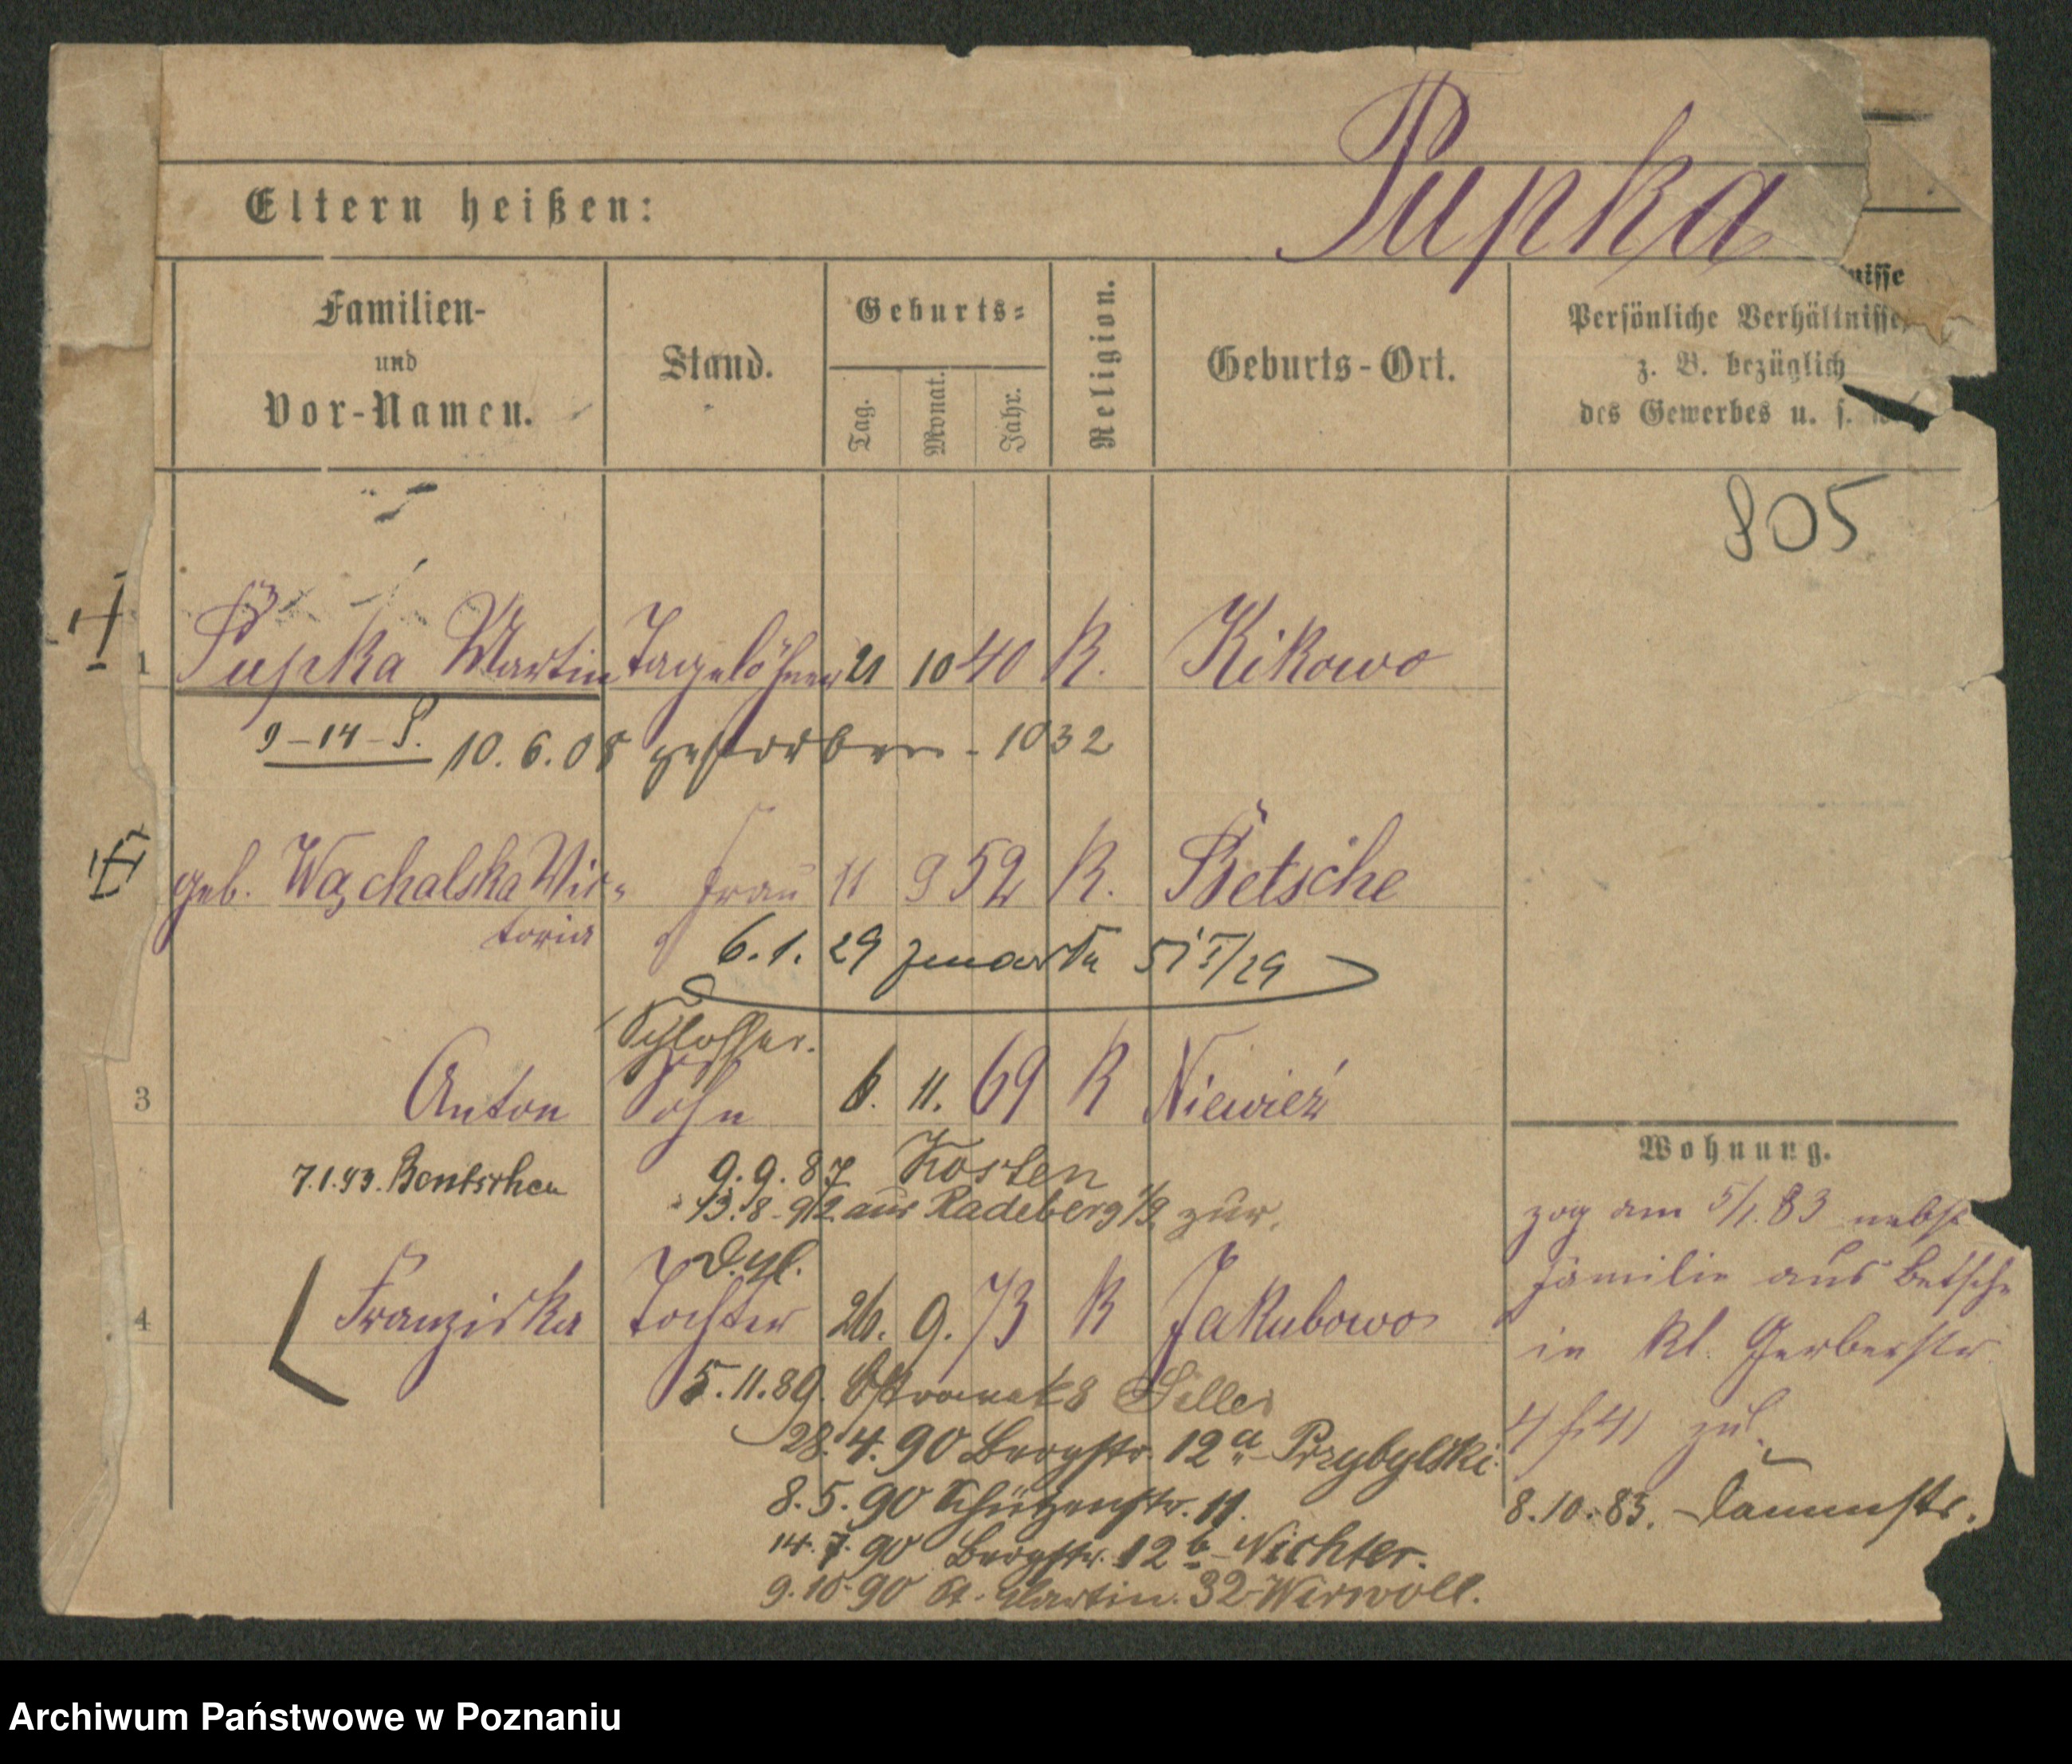 Pupka
Eltern heißen:
Familien-
und
Vor-Namen.
Stand.
Geburts-
Tag.
Monat.
Jahr.
Religion.
Geburts-Ort.
nisse
Persönliche Verhältnisse,
z. B. bezüglich
des Gewerbes u. s.
805
1 Pupka Martin Tagelöhner 21 10 40 K. Kikowo
9-14-S. 10.6.08 gestorben - 1032
geb. Wachalska Vic- Frau 11 9 52 K. Betsche
toria
6.1.29 zmarła 51 I/29
Schlosser.
3 Anton Sohn 6. 11. 69 K Niewierz
7.1.93. Bentschen
9.9.87 Kosten
13.8.92 aus Radeberg 1/9 zur.
4 Franziska Tochter 26. 9. 73 K Jakubowo
5.11.89. 8
28.4.90 Bergstr. 12a Przybylski
8.5.90 Schützenstr. 11.
14.7.90 Bergstr. 12b Nichter.
9.10.90 St. Martin. 32
Wohnung.
zog am 5/1.83 nebst
Familie aus Betsche
in kl. Gerberstr
4 zu.
8.10.83. Dammstr.
Archiwum Państwowe w Poznaniu